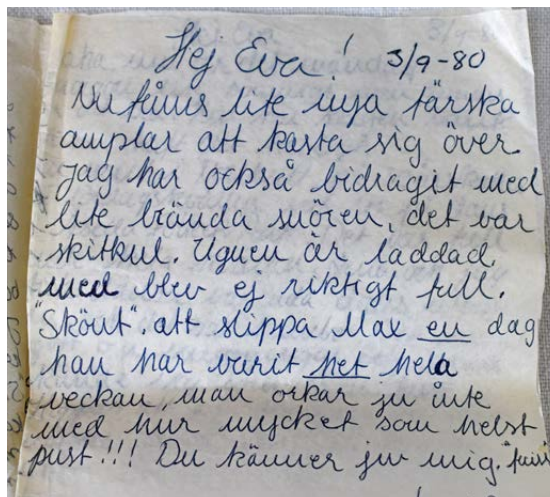 Hej Eva! 3/9-80
Nu finns lite nya färska
amplar att kasta sig över.
Jag har också bidragit med
lite brända snören, det var
skitkul. Ugnen är laddad
med blev ej riktigt full.
"Skönt". att slippa Max en dag
han har varit het hela
veckan, man orkar ju inte
med hur mycket som helst
pust!!! Du känner ju mig.